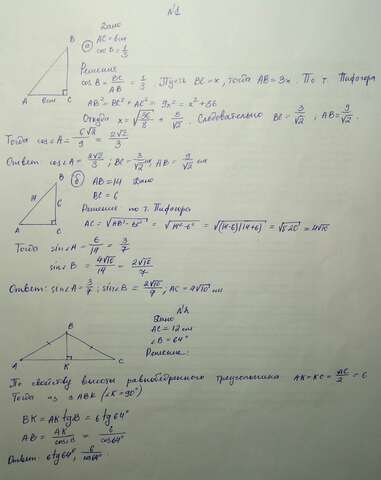 №1
Дано
а) AC = 6см
cos B = 1/3
B
A 6см C
Решение
cos B = BC/AB = 1/3. Пусть BC = x, тогда AB = 3x. По т. Пифагора
AB² = BC² + AC² = 9x² = x² + 36
Откуда x = √36/8 = 3/√2. Следовательно BC = 3/√2; AB = 9/√2.
Тогда cos∠A = 6√2/9 = 2√2/3
Ответ cos∠A = 2√2/3; BC = 3/√2 см, AB = 9/√2 см
б) AB = 14 Дано
BC = 6
B
14 6
A C
Решение: по т. Пифагора
AC = √AB² - BC² = √14² - 6² = √(14-6)(14+6) = √8·20 = 4√10
Тогда sin∠A = 6/14 = 3/7
sin∠B = 4√10/14 = 2√10/7
Ответ: sin∠A = 3/7; sin∠B = 2√10/7, AC = 4√10 см
Дано
AC = 12см
∠B = 64°
Решение:
B
A K C
По свойству высоты равнобедренного треугольника AK = KC = AC/2 = 6
Тогда из △ABK (∠K = 90°)
BK = AK tg B = 6 tg 64°
AB = AK/cos B = 6/cos 64°
Ответ: 6 tg 64°, 6/cos 64°.